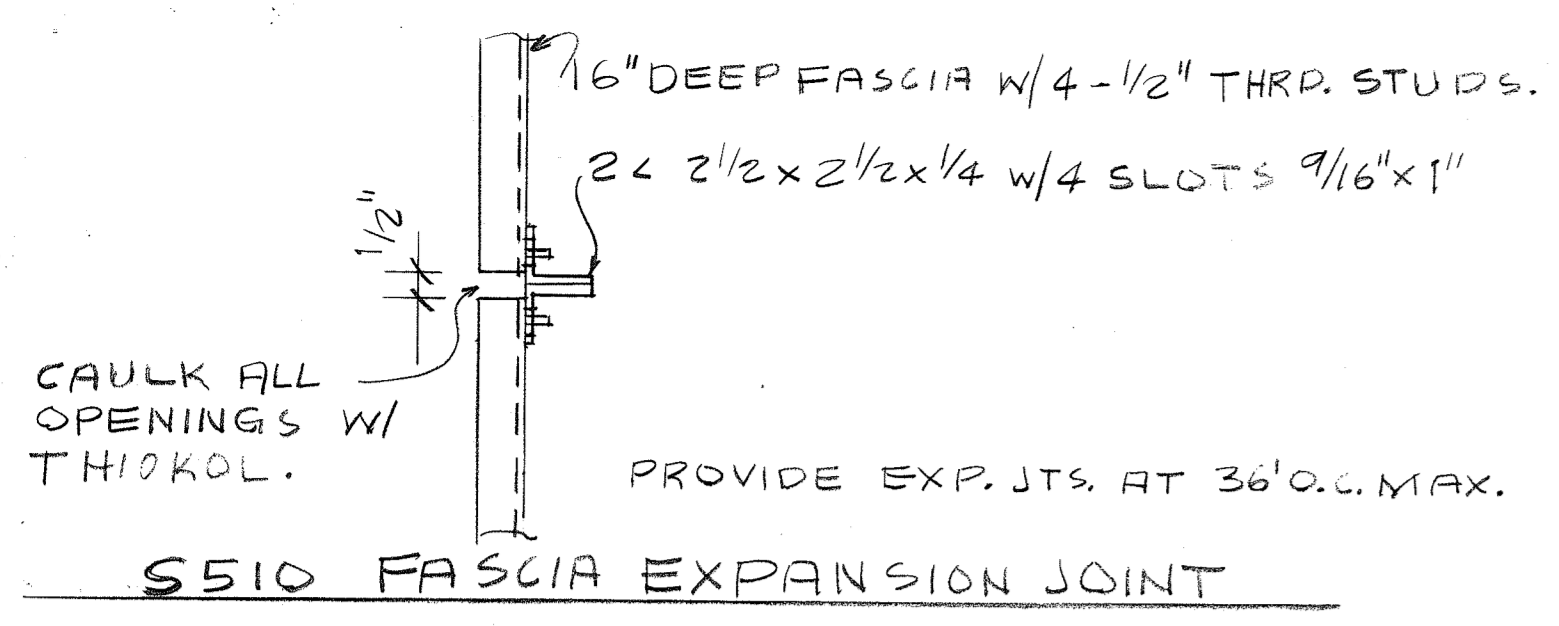 16" DEEP FASCIA W/ 4 - 1/2" THRD. STUDS.
2 < 2 1/2 x 2 1/2 x 1/4 W/ 4 SLOTS 9/16" x 1"
1/2"
CAULK ALL
OPENINGS W/
THIOKOL.
PROVIDE EXP. JTS. AT 36' O.C. MAX.
S510 FASCIA EXPANSION JOINT